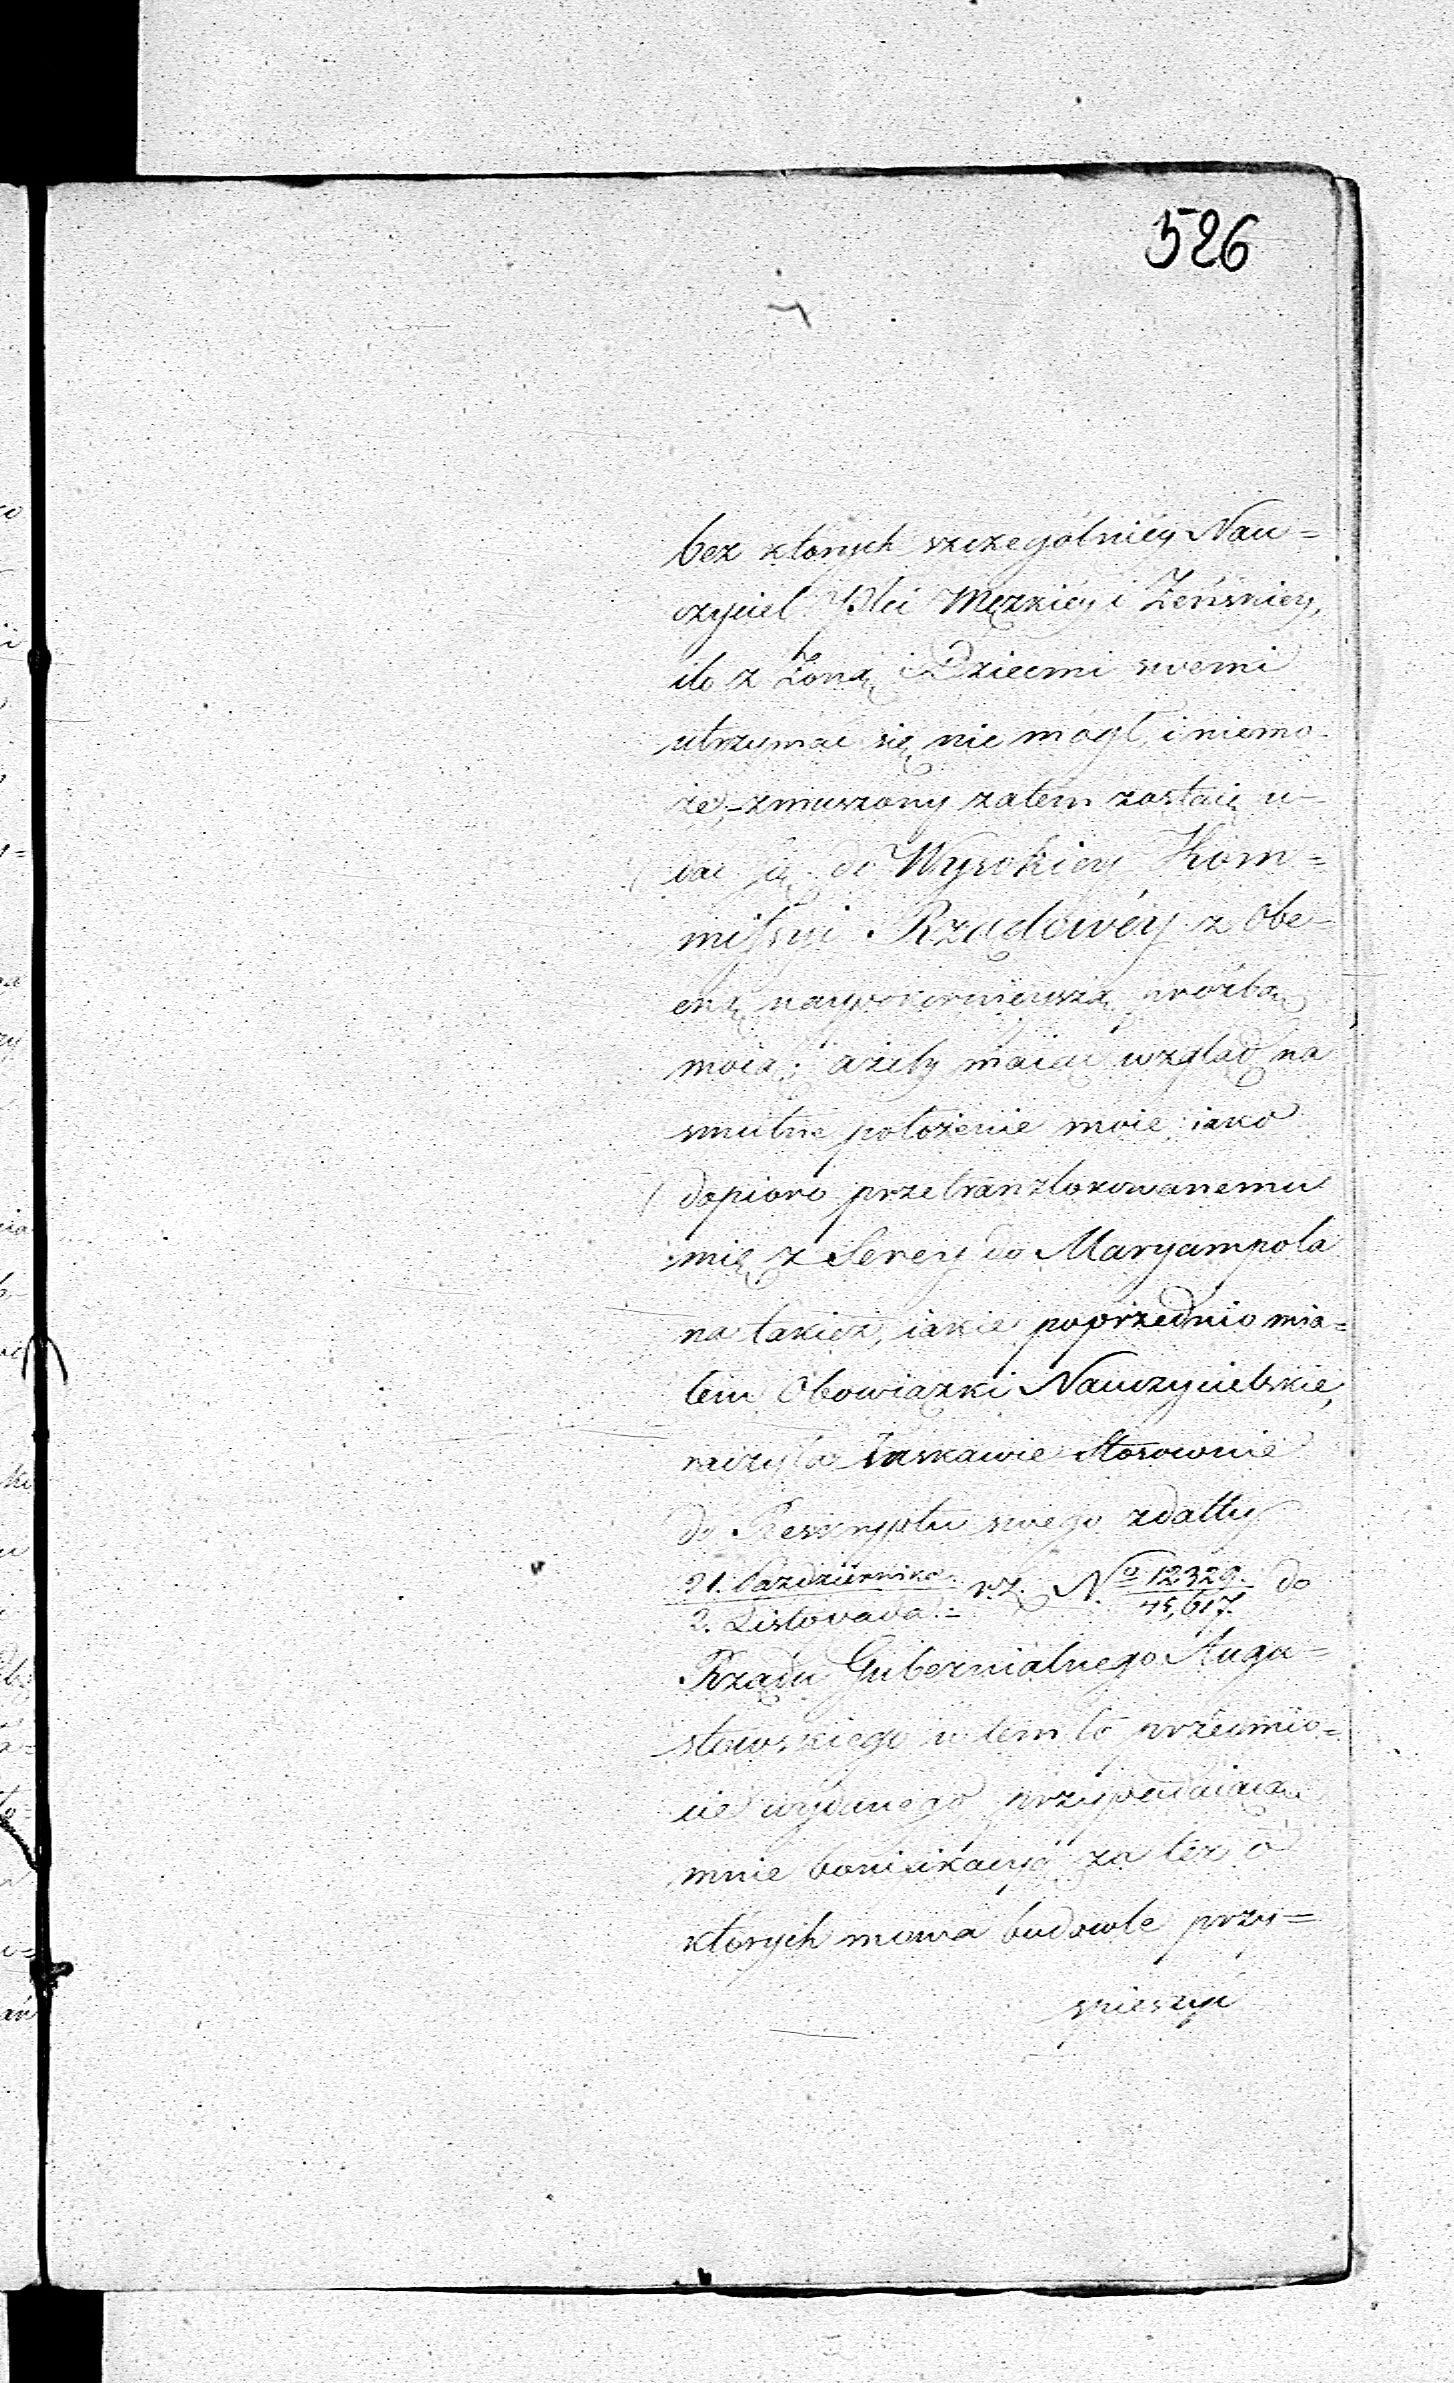 526
bez których szczególniey Nau=
czyciel Płci Męzkiéy i Żeńskiey,
ile z Żoną i Dziećmi swemi
utrzymać się nie mógł, i niemo-
że, zmuszony zatem zostaię u-
dać się do Wysokiey Kom=
missyi Rządowéy z Obe-
cną naypokornieyszą proźbą
moią; ażeby maiąc wzgląd na
smutne położenie moie iako
dopiero przetranzlokowanemu
mię z Serey do Maryampola
na takież, iakie poprzednio mia=
łem Obowiązki Nauczycielskie,
raczyła łaskawie Stosownie
do Reskryptu swego z datty
21. Października
2. Listopada r.z. No 12329.
45,617. do
Rządu Gubernialnego Augu=
stowskiego w tem to przedmio=
cie wydanego przypadaiącą
mnie bonifikacyą za też o
których mowa budowle przy=
spieszyć